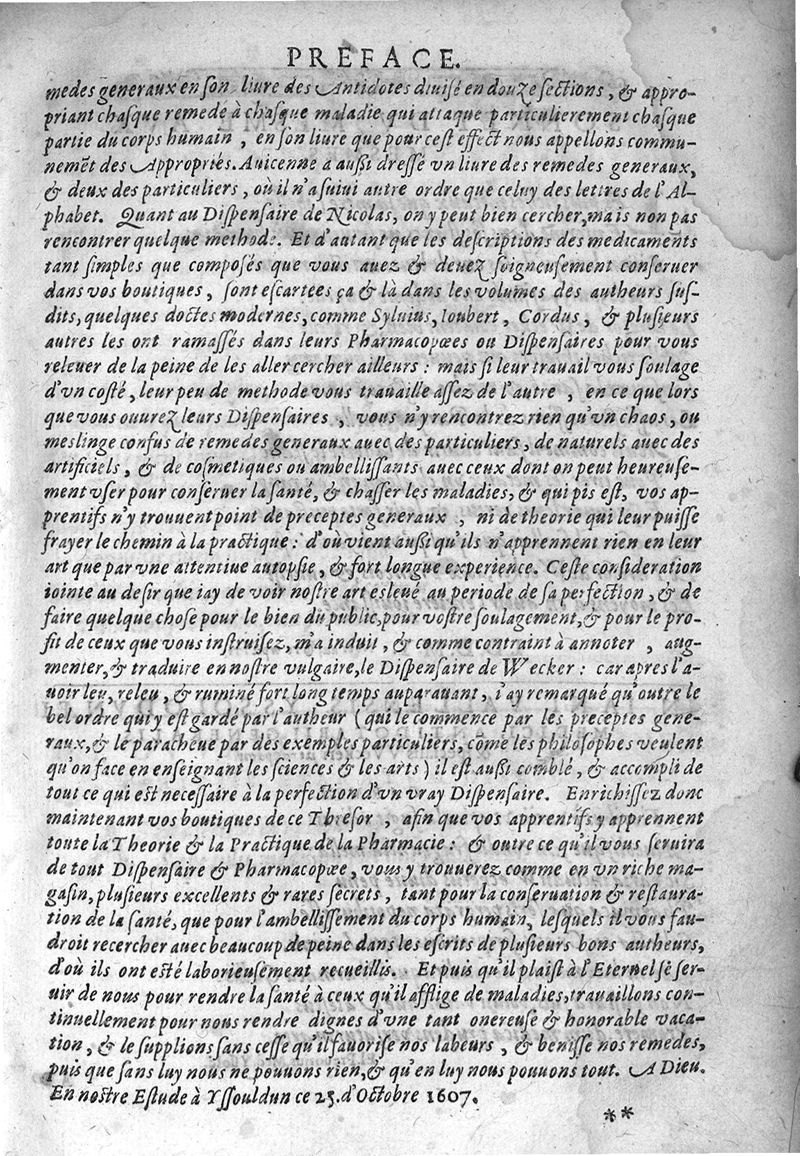 PREFACE.
medes generaux en son liure des Antidotes diuisé en douze sections, & appro-
priant chasque remede à chasque maladie qui attaque particulierement chasque
partie du corps humain, en son liure que pour cest effect nous appellons commu-
nemẽt des Appropriés. Auicenne a aussi dressé vn liure des remedes generaux,
& deux des particuliers, où il n'a suiui autre ordre que celuy des lettres de l'Al-
phabet. Quant au Dispensaire de Nicolas, on y peut bien cercher, mais non pas
rencontrer quelque methode. Et d'autant que les descriptions des medicaments
tant simples que composés que vous auez & deuez soigneusement conseruer
dans vos boutiques, sont escartees ça & là dans les volumes des autheurs sus-
dits, quelques doctes modernes, comme Syluius, Ioubert, Cordus, & plusieurs
autres les ont ramassés dans leurs Pharmacopœes ou Dispensaires pour vous
releuer de la peine de les aller cercher ailleurs : mais si leur trauail vous soulage
d'vn costé, leur peu de methode vous trauaille assez de l'autre, en ce que lors
que vous ouurez leurs Dispensaires, vous n'y rencontrez rien qu'vn chaos, ou
meslinge confus de remedes generaux auec des particuliers, de naturels auec des
artificiels, & de cosmetiques ou ambellissants auec ceux dont on peut heureuse-
ment vser pour conseruer la santé, & chasser les maladies, & qui pis est, vos ap-
prentifs n'y trouuent point de preceptes generaux, ni de theorie qui leur puisse
frayer le chemin à la practique : d'où vient aussi qu'ils n'apprennent rien en leur
art que par vne attentiue autopsie, & fort longue experience. Ceste consideration
iointe au desir que i'ay de voir nostre art esleué au periode de sa perfection, & de
faire quelque chose pour le bien du public, pour vostre soulagement, & pour le pro-
fit de ceux que vous instruisez, m'a induit, & comme contraint à annoter, aug-
menter, & traduire en nostre vulgaire, le Dispensaire de Wecker : car apres l'a-
uoir leu, releu, & ruminé fort long temps auparauant, i'ay remarqué qu'outre le
bel ordre qui y est gardé par l'autheur (qui le commence par les preceptes gene-
raux, & le paracheue par des exemples particuliers, cõme les philosophes veulent
qu'on face en enseignant les sciences & les arts) il est aussi comblé, & accompli de
tout ce qui est necessaire à la perfection d'vn vray Dispensaire. Enrichissez donc
maintenant vos boutiques de ce Thresor, afin que vos apprentifs y apprennent
toute la Theorie & la Practique de la Pharmacie : & outre ce qu'il vous seruira
de tout Dispensaire & Pharmacopœe, vous y trouuerez comme en vn riche ma-
gasin, plusieurs excellents & rares secrets, tant pour la conseruation & restaura-
tion de la santé, que pour l'ambellissement du corps humain, lesquels il vous fau-
droit recercher auec beaucoup de peine dans les escrits de plusieurs bons autheurs,
d'où ils ont esté laborieusement recueillis. Et puis qu'il plaist à l'Eternel se ser-
uir de nous pour rendre la santé à ceux qu'il afflige de maladies, trauaillons con-
tinuellement pour nous rendre dignes d'vne tant onereuse & honorable vaca-
tion, & le supplions sans cesse qu'il fauorise nos labeurs, & benisse nos remedes,
puis que sans luy nous ne pouuons rien, & qu'en luy nous pouuons tout. A Dieu.
En nostre Estude à Yssouldun ce 25. d'Octobre 1607.
**